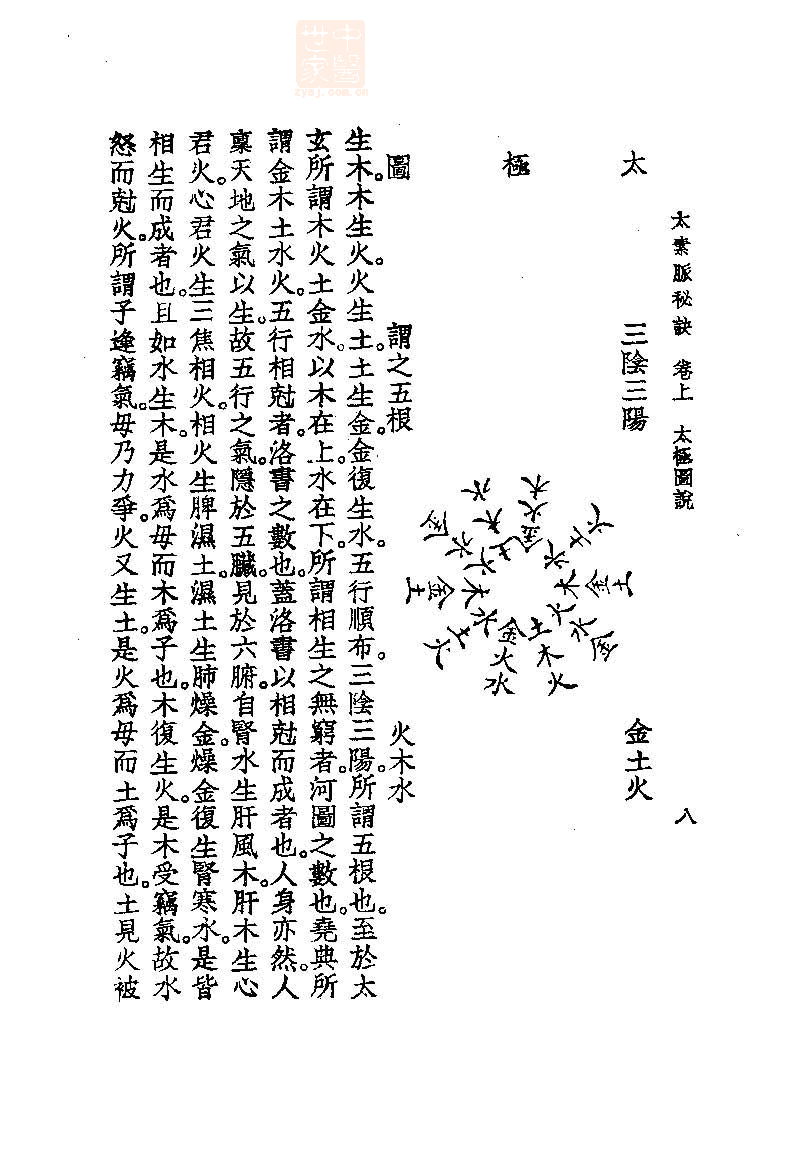 中醫世家
zysj.com.cn
太素脈秘訣 卷上 太極圖說 八
太極圖
三陰三陽
謂之五根
金土火
火木水
生木。木生火。火生土。土生金。金復生水。五行順布。三陰三陽。所謂五根也。至於太
玄所謂木火土金水。以木在上。水在下。所謂相生之無窮者。河圖之數也。堯典所
謂金木土水火。五行相尅者。洛書之數也。蓋洛書以相尅而成者也。人身亦然。人
稟天地之氣以生。故五行之氣。隱於五臟。見於六腑。自腎水生肝風木。肝木生心
君火。心君火生三焦相火。相火生脾濕土。濕土生肺燥金。燥金復生腎寒水。是皆
相生而成者也。且如水生木。是水爲母而木爲子也。木復生火。是木受竊氣。故水
怒而尅火。所謂子逢竊氣。母乃力爭。火又生土。是火爲母而土爲子也。土見火被